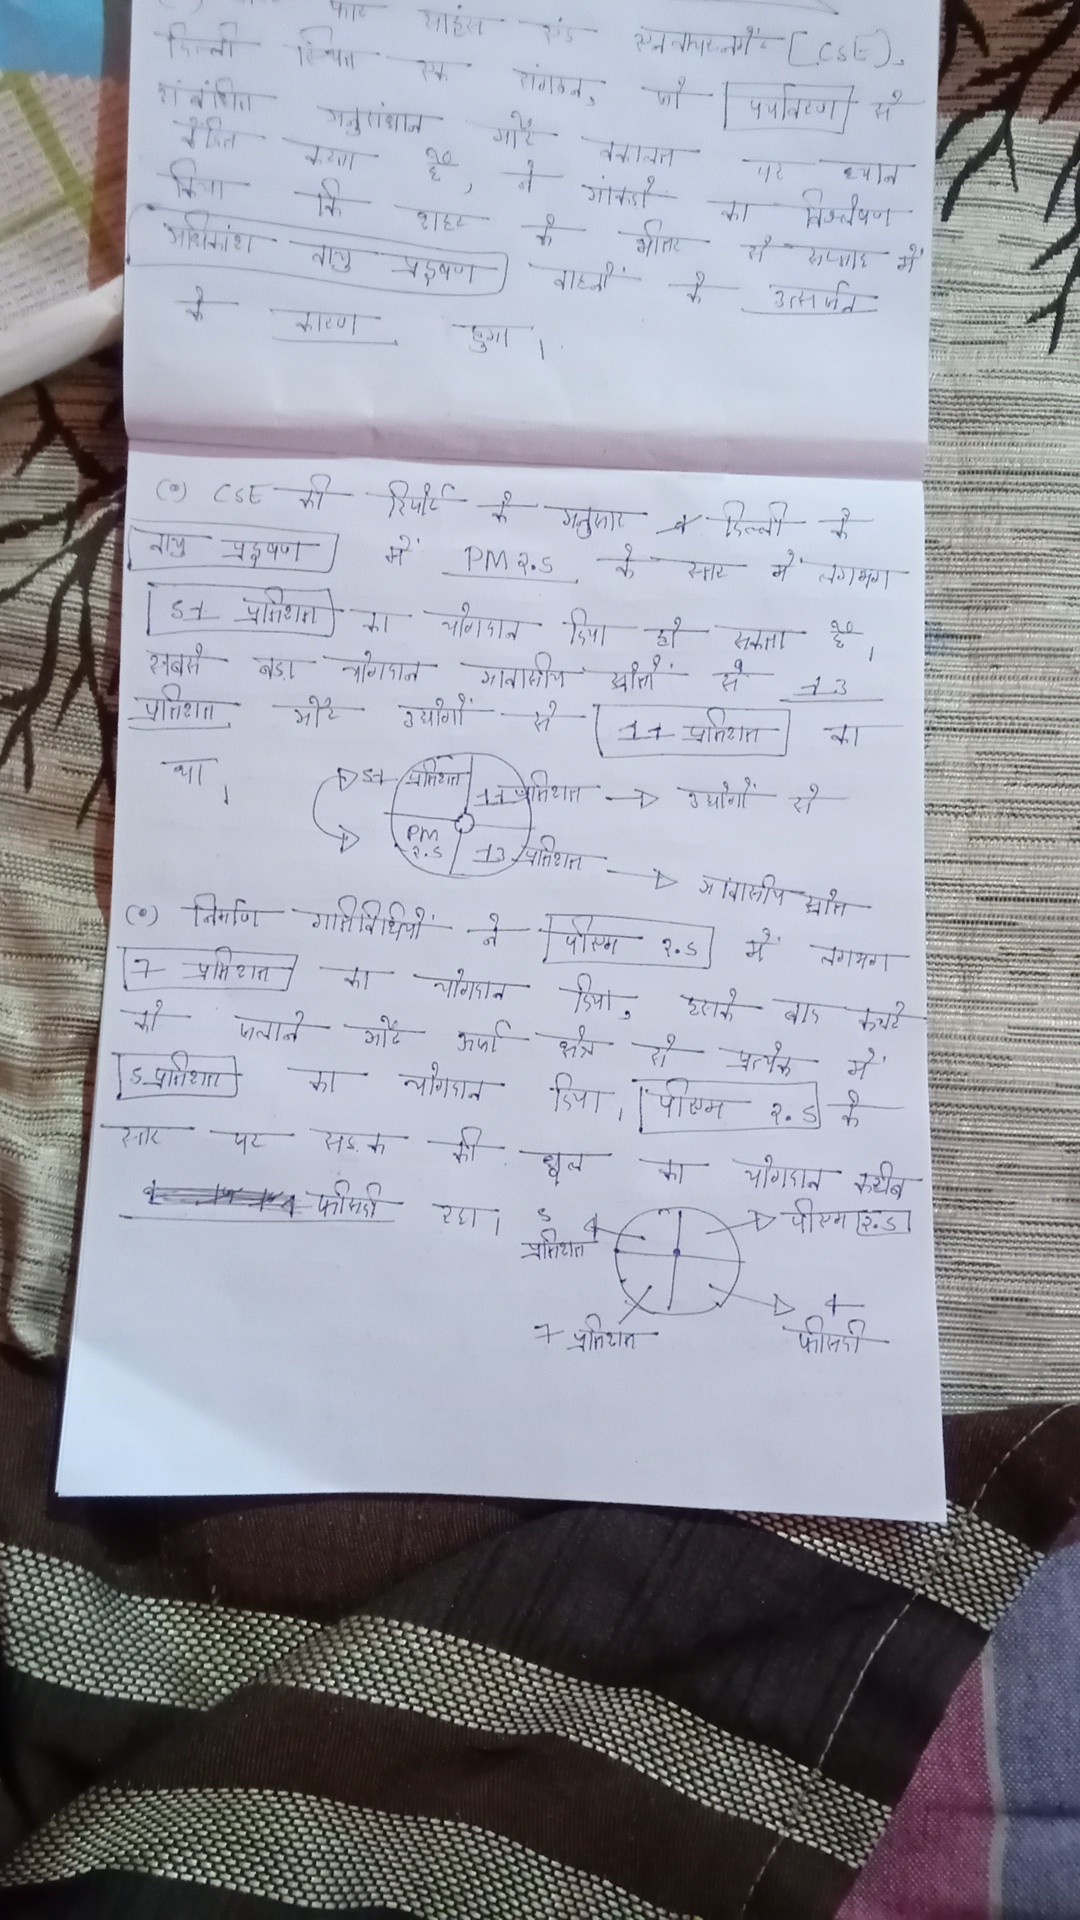 फार साइंस एंड एनवायरनमेंट [CSE),
दिल्ली स्थित एक संगठन, जो पर्यावरण से
संबंधित अनुसंधान और वकालत पर ध्यान
केंद्रित करता है, ने आंकडों का विश्लेषण
किया कि शहर के भीतर से सप्ताह में
अधिकांश वायु प्रदूषण वाहनों के उत्सर्जन
के कारण हुआ।
(०) CSE की रिपोर्ट के अनुसार दिल्ली के
वायु प्रदूषण में PM २.5 के स्तर में लगभग
51 प्रतिशत का योगदान दिया हो सकता है।
सबसे बड़ा योगदान आवासीय स्रोतों से 13
प्रतिशत और उद्योगों से 11 प्रतिशत का
था।
51 प्रतिशत
11 प्रतिशत → उद्योगों से
PM २.5
13 प्रतिशत → आवासीय स्रोत
(०) निर्माण गतिविधियों ने पीएम २.5 में लगभग
7 प्रतिशत का योगदान दिया, इसके बाद कचरे
को जलाने और ऊर्जा क्षेत्र से प्रत्येक में
5 प्रतिशत का योगदान दिया। पीएम २.5 के
स्तर पर सड़क की धूल का योगदान करीब
फीसदी रहा।
5 प्रतिशत
पीएम २.5
7 प्रतिशत
4 फीसदी